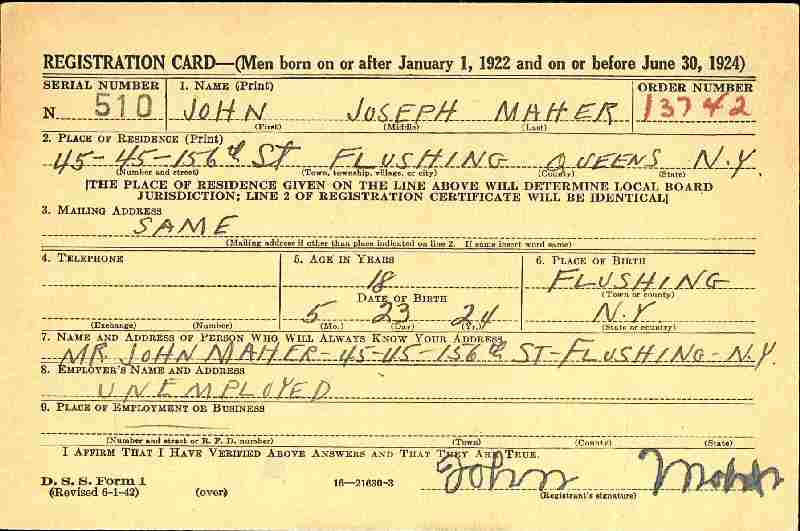 REGISTRATION CARD—(Men born on or after January 1, 1922 and on or before June 30, 1924)
SERIAL NUMBER 1. NAME (Print) ORDER NUMBER
N 510 JOHN JOSEPH MAHER 13742
(First) (Middle) (Last)
2. PLACE OF RESIDENCE (Print)
45-45-156th ST FLUSHING QUEENS N.Y.
(Number and street) (Town, township, village, or city) (County) (State)
[THE PLACE OF RESIDENCE GIVEN ON THE LINE ABOVE WILL DETERMINE LOCAL BOARD
JURISDICTION; LINE 2 OF REGISTRATION CERTIFICATE WILL BE IDENTICAL]
3. MAILING ADDRESS
SAME
(Mailing address if other than place indicated on line 2. If same insert word same)
4. TELEPHONE 5. AGE IN YEARS 6. PLACE OF BIRTH
18 FLUSHING
DATE OF BIRTH (Town or county)
5 23 24 N.Y
(Exchange) (Number) (Mo.) (Day) (Yr.) (State or country)
7. NAME AND ADDRESS OF PERSON WHO WILL ALWAYS KNOW YOUR ADDRESS
MR. JOHN MAHER-45-45-156th ST-FLUSHING-N.Y.
8. EMPLOYER'S NAME AND ADDRESS
UNEMPLOYED
9. PLACE OF EMPLOYMENT OR BUSINESS
(Number and street or R. F. D. number) (Town) (County) (State)
I AFFIRM THAT I HAVE VERIFIED ABOVE ANSWERS AND THAT THEY ARE TRUE.
D. S. S. Form 1 16—21630-3 John Maher
(Revised 6-1-42) (over) (Registrant's signature)